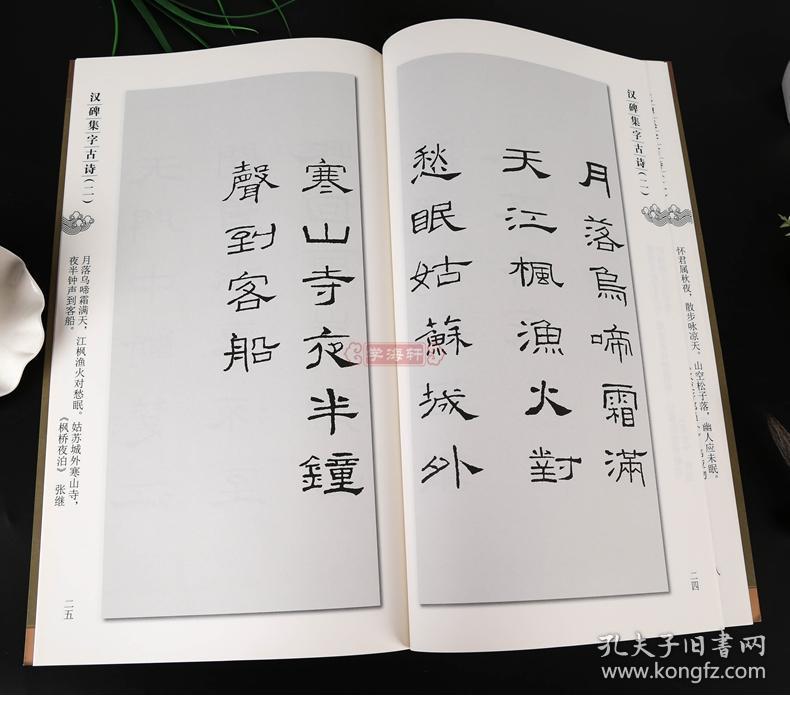 汉碑集字古诗(二)
怀君属秋夜，散步咏凉天。山空松子落，幽人应未眠。
二四
月落烏啼霜滿
天江楓漁火對
愁眠姑蘇城外
寒山寺夜半鐘
聲到客船
汉碑集字古诗(二)
月落乌啼霜满天，江枫渔火对愁眠。姑苏城外寒山寺，
夜半钟声到客船。
《枫桥夜泊》 张继
二五
学海轩
孔夫子旧书网
www.kongfz.com